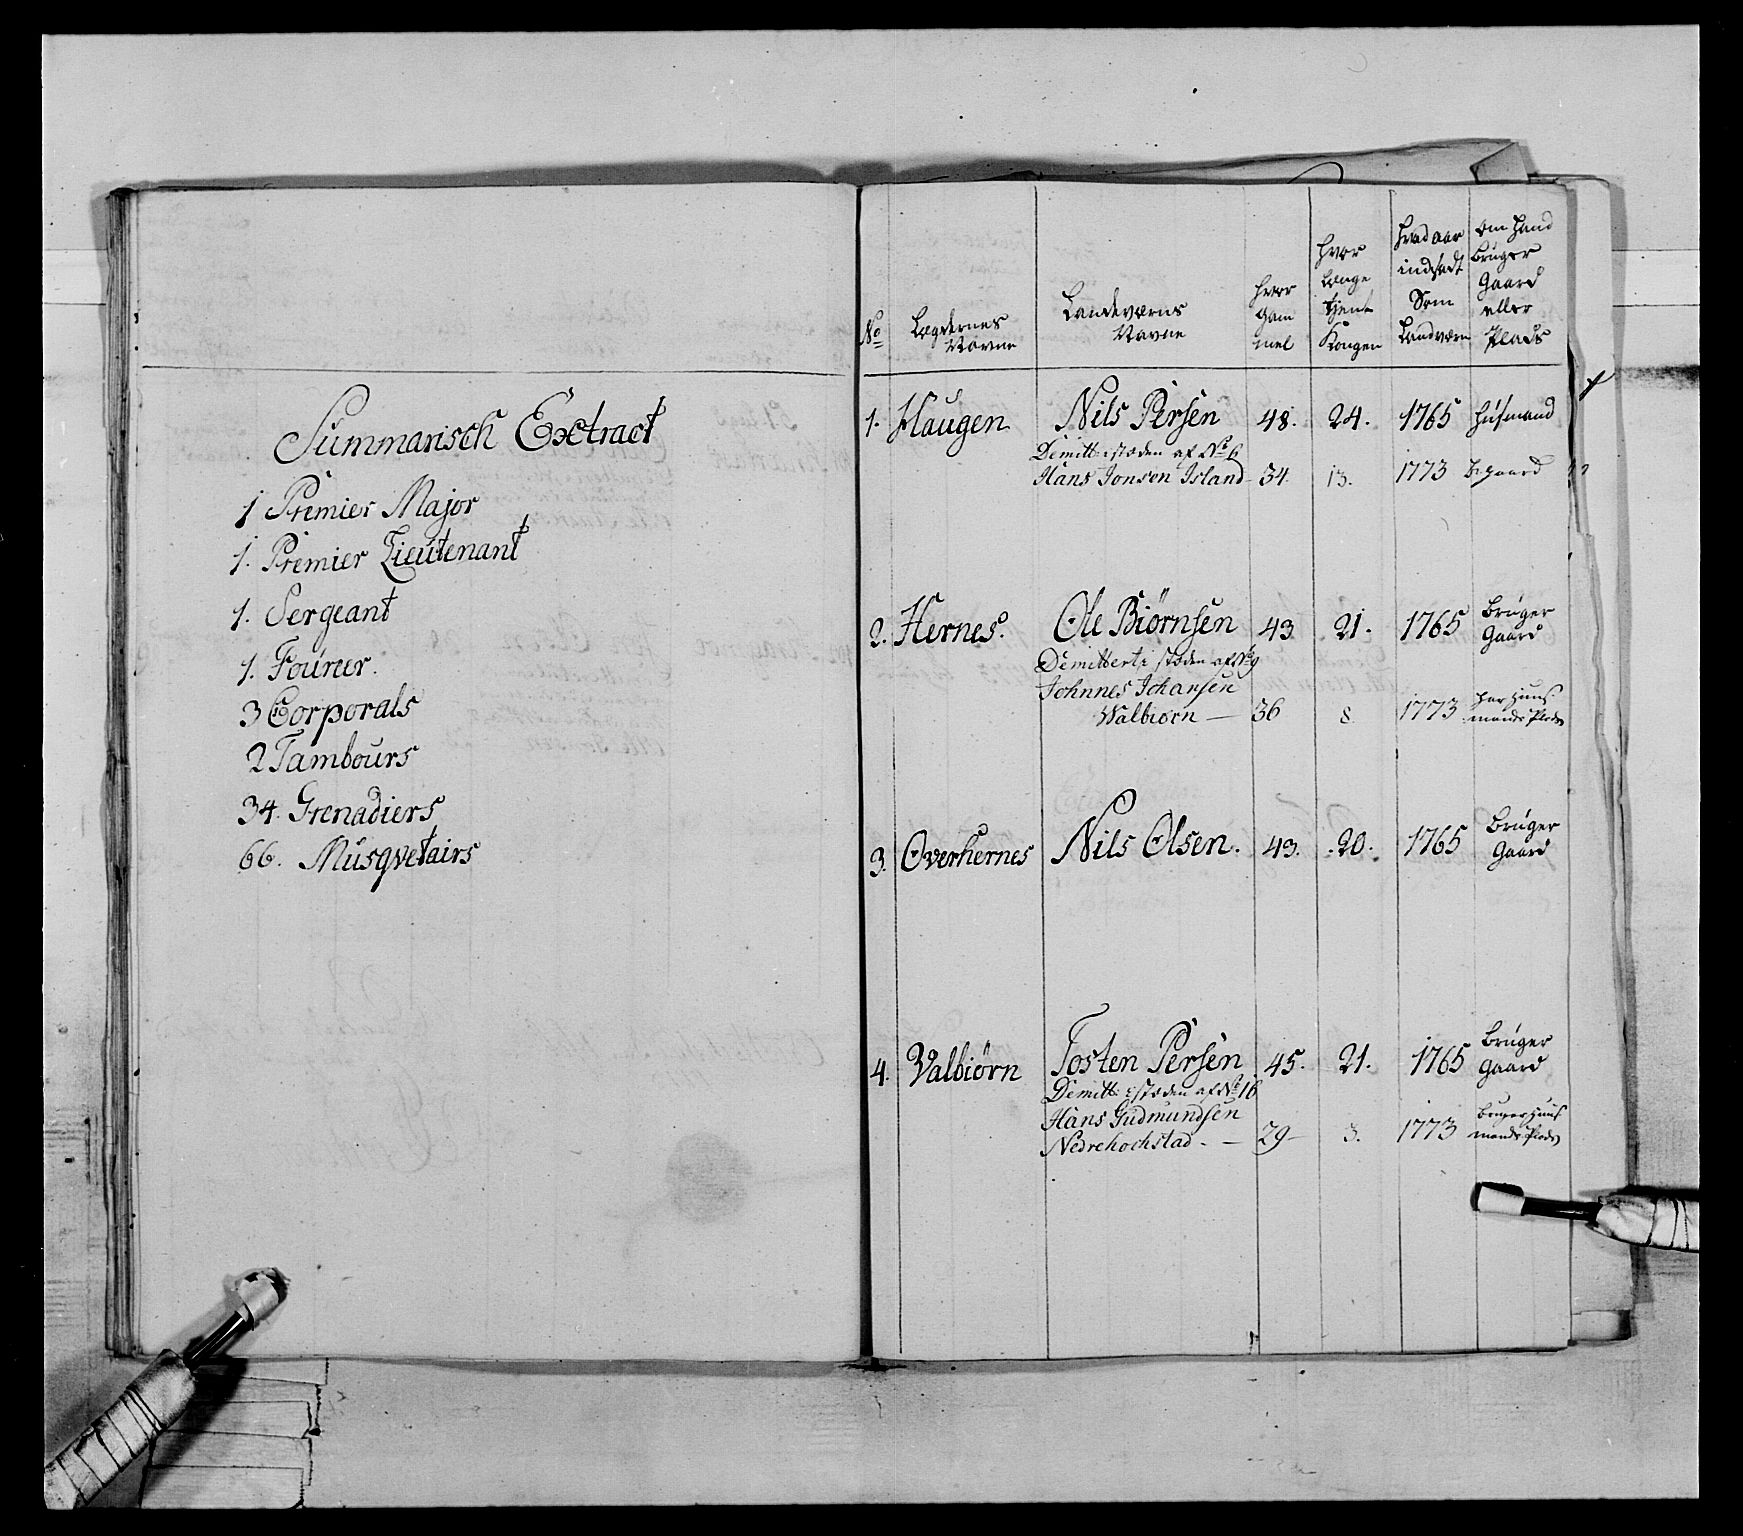 Summarisch Exctract
1 Premier Major
1. Premier Lieutenant
1. Sergeant
1. Fourier.
3 Corporals
2 Tambours
34. Grenadiers
66. Musqvetairs
No
Lægdernes
Navne
Landeværns
Navne
Hvor
gam
mel
Hvor
længe
tjent
Kongen
Hvad aar
indsadt
Som
Landværn
Om Hand
Bruger
Gaard
eller
Plads
1. Haugen Nils Persen 48. 24. 1765 Husmand
Demitt: i stæden af No 6
Hans Jonsen Island 34. 13. 1773 gaard
2. Hernes. Ole Biørnsen 43 21. 1765 Bruger
Gaard
Demittert i stæden af No 9
Johnnes Johansen
Walbiørn — 36 8 1773 har Huus
mands Plads
3. Overhernes Nils Olsen. 43. 20. 1765 Bruger
Gaard
4. Valbiørn Tosten Persen 45. 21. 1765 Bruger
Gaard
Demitt: i stæden af No 16
Hans Gudmundsen
Nedrehochstad - — 29 — 3. 1773 Bruger Huus
mands Plads